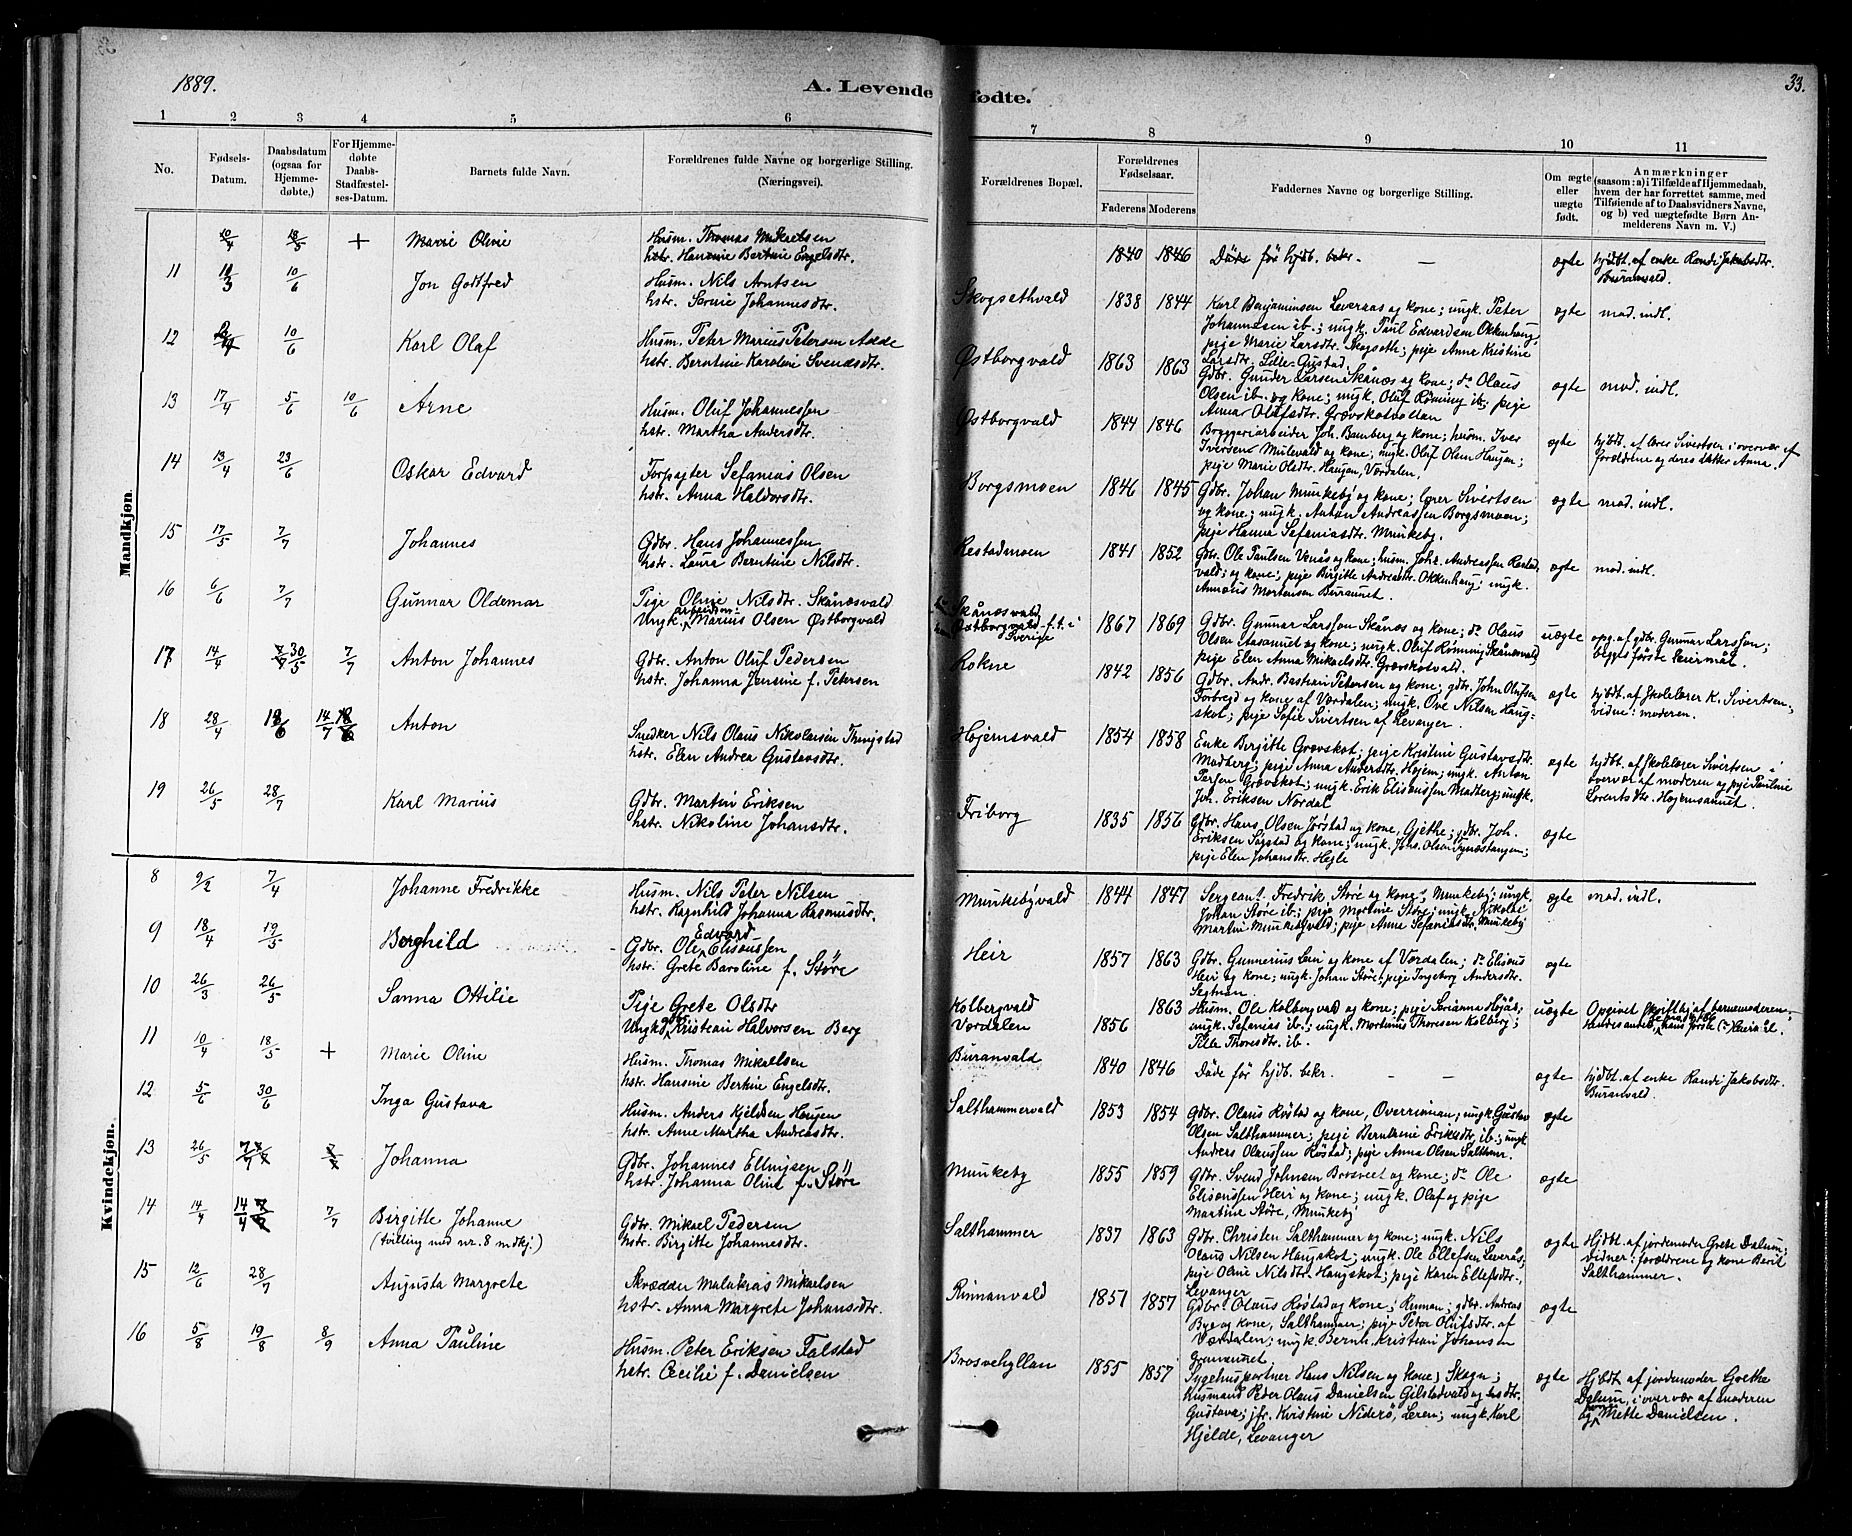 1889.
A. Levende fødte.
33.
1 2 3 4 5 6 7 8 9 10 11
No.
Fødsels-Datum.
Daabsdatum (ogsaa for Hjemme-døbte,)
For Hjemme-døbte Daabs-Stadfæstel-ses-Datum.
Barnets fulde Navn.
Forældrenes fulde Navne og borgerlige Stilling. (Næringsvei).
Forældrenes Bopæl.
Forældrenes Fødselsaar.
Faderens Moderens
Faddernes Navne og borgerlige Stilling.
Om ægte eller uægte født.
Anmærkninger (saasom: a) i Tilfælde af Hjemmedaab, hvem der har forrettet samme, med Tilføiende af to Daabsvidners Navne, og b) ved uægtefødte Børn Anmelderens Navn m. V.)
Mandkjøn.
10/4 18/5 + Marie Oline
Husm. Thomas Mikaelsen
hstr. Hansine Bertine Engelsdtr.
1840 1846 Døde før hjdb. bekr. — ægte
hjdbt. af enke Randi Jakobsdtr.
Buranvald.
11 10/6 Jon Godtfred
Husm. Nils Arntsen
hstr. Serine Johannesdtr.
Skogsethvald 1838 1844
Karl Benjaminsen Leveraas og kone; ungk. Peter
Johannesen ib.; ungk. Paul Edvardsen Okkenhaug;
pige Marie Larsdtr. Skogseth; pige Anne Kristine
Larsdtr. Lille-Gustad.
ægte mod. indl.
12 10/6 Karl Olaf
Husm. Peter Marius Petersen
hstr. Berntine Karoline Svendsdtr.
Østborgvald 1863 1863
Gdbr. Gunder Larsen Skånæs og kone; do Olaus
Olsen ib. og kone; ungk. Oluf Rönning ib; pige
Anna Olufsdtr. Grævskotvollan
ægte mod. indl.
13 17/4 5/6 10/6 Arne
Husm. Oluf Johannessen
hstr. Martha Andersdtr.
Østborgvald 1844 1846
Bryggeriarbeider Joh. Bamberg og kone; husm. Iver
Iversen Mulevald og kone; ungk. Oluf Olsen Haugen;
pige Marie Olsdtr. Haugen, Værdalen.
ægte hjbdt. af lærer Sivertsen i overvær af
forældrene og deres datter Anna.
14 13/4 23/6 Oskar Edvard
Forpagter Sefanias Olsen
hstr. Anna Haldorsdtr.
Borgsmoen 1846 1845
Gdbr. Johan Munkeby og kone; lærer Sivertsen
og kone; ungk. Anton Andreassen Borgsmoen;
pige Hanna Sefaniasdtr. Munkeby.
ægte mod. indl.
15 17/5 7/7 Johannes
Gdbr. Hans Johannessen
hstr. Laura Berntine Nilsdtr.
Restadmoen 1841 1852
Gdbr. Ole Paulsen Venås og kone; husm. Joh. Andreassen Restad
vald; og kone; pige Birgitte Andreasdtr. Okkenhaug; ungk.
Annæus Mortensen
ægte mod. indl.
16 6/6 7/7 Gunnar Oldemar
Pige Oline Nilsdtr. Skånæsvald
Ungk. arbeidsm. Marius Olsen Østborgvald
Skånæsvald
Østborgvald - f.t. i
Sverige
1867 1869
Gdbr. Gunnar Larssen Skånæs og kone; do Olaus
Olsen Aasaunet og kone; ungk. Oluf Rönning Skånæsvald
pige Elen Anna Mikaelsdtr. Grævskotvald.
uægte opg. af gdbr. Gunnar Larssen;
begges første leiermål.
17 14/4 30/5 7/7 Anton Johannes
Gdbr. Anton Oluf Pedersen
hstr. Johanna Jensine f. Petersen
Rokne 1842 1856
Gdbr. Andr. Bastian Petersen og kone; gdbr. John Olufsen
Forbregd og kone af Værdalen; ungk. Ove Nilsen Haug-
skot; pige Sofie Sivertsen af Levanger.
ægte hjbdt. af Skolelærer K. Sivertsen,
vidne: moderen.
18 28/4 14/7 Anton
Snedker Nils Olaus Nikolaisen Thingstad
hstr. Elen Andrea Gustavsdtr.
Højemsvald 1854 1858
Enke Birgitte Grævskot; pige Kristine Gustavsdtr.
Madberg; pige Anna Andersdtr. Højem; ungk. Anton
Persen Grævskot; ungk. Erik Elisæussen Madberg; ungk.
Joh. Eriksen Nordal
ægte hjdbt. af Skolelærer Sivertsen i
overvær af moderen og pige Pauline
Lorentsdtr. Højemsaunet.
19 26/5 28/7 Karl Marius
Gdbr. Martin Eriksen
hstr. Nikoline Johansdtr.
Friborg 1835 1856
Gdbr. Hans Olsen Jørstad og kone, Gjethe; gdbr. Joh.
Eriksen Søgstad og kone; ungk. Johs. Olsen Tynæstangen;
pige Elen Johansdtr. Hegle
ægte
Kvindekjøn.
8 9/2 7/4 Johanne Fredrikke
Husm. Nils Peter Nilsen
hstr. Ragnhild Johanna Rasmusdtr.
Munkebyvald 1844 1847
Sergeant Fredrik Støre og kone, Munkeby; ungk.
Johan Støre ib.; pige Martine Støre; ungk. Nikolai
Martin Munkebyvald; pige Anne Sefaniasdtr. Munkeby
ægte mod. indl.
9 18/4 19/5 Berghild
Gdbr. Ole Edvard Elisæussen
hstr. Grete Baroline f. Støre
Heir 1857 1863
Gdbr. Gunnerius Leir og kone af Værdalen; do Elisæus
Heir og kone; ungk. Johan Støre; pige Ingeborg Andersdtr.
Segtnan
ægte
10 26/3 26/5 Sanna Ottilie
Pige Grete Olsdtr
Ungk. gdbr. Kristian Halvorsen Berg
Kolbergvald
Værdalen
1856 1863
Husm. Ole Kolbergvald og kone; pige Serianna Højås;
ungk. Sefanias ib.; ungk. Mortinus Thoresen Kolberg;
Pige Thoresdtr. ib.
uægte Opgivet skriftlig af barnemoderen;
hans første leiermål.
11 10/4 18/5 + Marie Oline
Husm. Thomas Mikaelsen
hstr. Hansine Bertine Engelsdtr.
Buranvald 1840 1846
Døde før hjdb. bekr. — —
ægte hjdbt. af enke Randi Jakobsdtr.
Buranvald.
12 5/6 30/6 Inga Gustava
Husm. Anders Kjeldsen Haugen
hstr. Anne Martha Andreasdtr.
Salthammervald 1853 1854
Gdbr. Olaus Røstad og kone, Overrinnan; ungk. Gustav
Olsen Salthammer; pige Berntine Eriksdtr. ib.; ungk.
Anders Olaussen Røstad; pige Anna Olsen Salthamr.
ægte
13 26/5 7/7 Johanna
Gdbr. Johannes Ellingsen
hstr. Johanna Oline f. Støre
Munkeby 1855 1859
Gdbr. Svend Johnsen Brosveet og kone; do Ole
Elisæussen Heir og kone; ungk. Olaf og pige
Martine Støre, Munkeby
ægte
14 14/4 7/7 Birgitte Johanne
(tvilling med nr. 8 mdkj.)
Gdbr. Mikael Pedersen
hstr. Birgitte Johannesdtr.
Salthammer 1837 1863
Gdbr. Christen Salthammer og kone; ungk. Nils
Olaus Nilsen Haugskot; ungk. Ole Ellefsen Leverås;
pige Oline Nilsdtr. Haugskot; pige Karen Ellefsdtr.,
Levanger
ægte Hjdbt. af jordemoder Grete Dalum;
vidner: forældrene og kone Beril
Salthammer.
15 12/6 28/7 Augusta Margrete
Skrædder Malakias Mikaelsen
hstr. Anna Margrete Johansdtr.
Rinnanvald 1851 1857
Gdbr. Olaus Røstad og kone, Rinnan; gdbr. Andreas
Bye og kone, Salthammer; pige Petra Olufsdtr. af
Værdalen; ungk. Bernh. Kristian Johansen
ægte
16 5/8 19/8 8/9 Anna Pauline
Husm. Peter Eriksen Falstad
hstr. Cecilie f. Danielsen
Brosvehyllan 1855 1857
Sygehusportner Hans Nilsen og kone, Skogn;
Husmand Peder Olaus Danielsen Gilstadvald og hstr.
Gustava; jfr. Kristine Niderø, Leren; ungk. Karl
Hjelde, Levanger
ægte Hjbdt. af jordemoder Grethe
Dalum, i overvær af moderen
og konen Mette Danielsen.